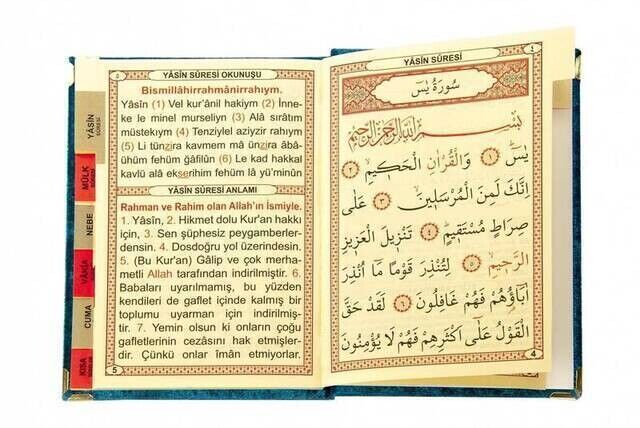 ٥
YÂSİN SÛRESİ OKUNUŞU
Bismillâhirrahmânirrahıym.
Yâsîn (1) Vel kur'ânil hakiym (2) İnne-
ke le minel murseliyn (3) Alâ sırâtım
müstekıym (4) Tenziylel aziyzir rahıym
(5) Li tünzira kavmem mâ ünzira âbâ-
ühüm fehüm ğâfilûn (6) Le kad hakkal
kavlü alâ ekserihim fehüm lâ yü'minûn
YÂSİN SÛRESİ ANLAMI
Rahman ve Rahim olan Allah'ın İsmiyle.
1. Yâsîn, 2. Hikmet dolu Kur'an hakkı
için, 3. Sen şüphesiz peygamberler-
densin. 4. Dosdoğru yol üzerindesin.
5. (Bu Kur'an) Gâlip ve çok merha-
metli Allah tarafından indirilmiştir. 6.
Babaları uyarılmamış, bu yüzden
kendileri de gaflet içinde kalmış bir
toplumu uyarman için indirilmiş-
tir. 7. Yemin olsun ki onların çoğu
gafletlerinin cezasını hak etmişler-
dir. Çünkü onlar îmân etmiyorlar.
5
YÂSİN
SÛRESİ
MÜLK
SÛRESİ
NEBE
VÂKIA
CUMA
KISA
SÛRELER
٤
YÂSİN SÛRESİ
سُورَةُ يٰسٓ
بِسْمِ اللّٰهِ الرَّحْمٰنِ الرَّحِيمِ
يٰسٓ ﴿١﴾ وَالْقُرْاٰنِ الْحَكِيمِ ﴿٢﴾
اِنَّكَ لَمِنَ الْمُرْسَلِينَ ﴿٣﴾ عَلٰى
صِرَاطٍ مُسْتَقِيمٍ ﴿٤﴾ تَنْزِيلَ الْعَزِيزِ
الرَّحِيمِ ﴿٥﴾ لِتُنْذِرَ قَوْمًا مَٓا اُنْذِرَ
اٰبَٓاؤُهُمْ فَهُمْ غَافِلُونَ ﴿٦﴾ لَقَدْ حَقَّ
الْقَوْلُ عَلٰٓى اَكْثَرِهِمْ فَهُمْ لَا يُؤْمِنُونَ
4